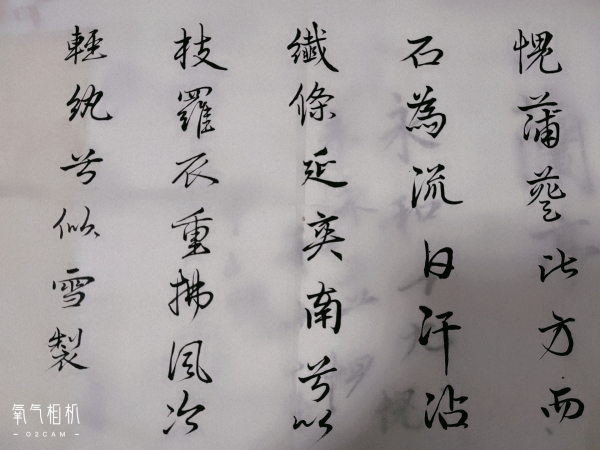 愧蒲葵此方而
石為流日汗沾
纖條延奕南兮以
枝羅衣重拂風冷
輕紈兮似雪製
氧气相机
– O2CAM –